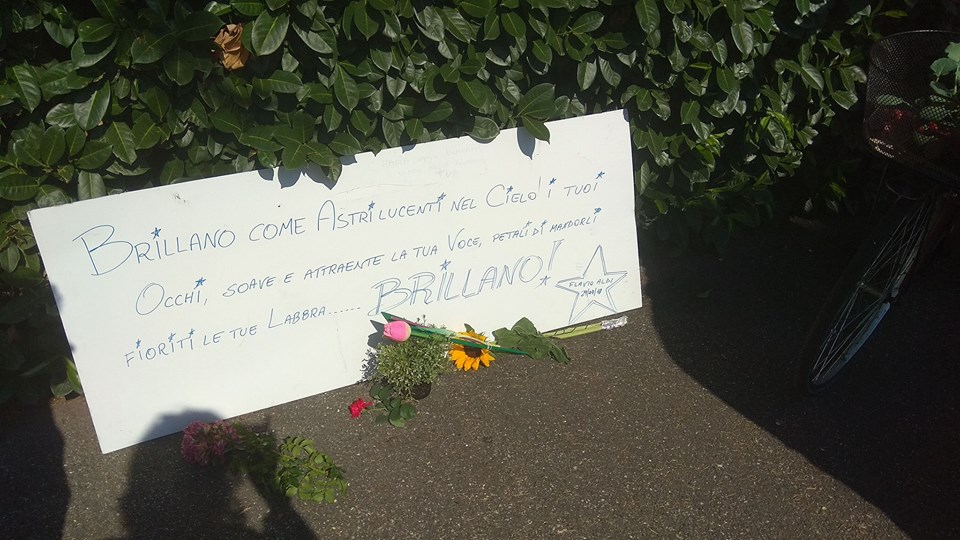 BRILLANO COME ASTRI LUCENTI NEL CIELO! I TUOI
OCCHI, SOAVE E ATTRAENTE LA TUA VOCE, PETALI DI MANDORLI
FIORITI LE TUE LABBRA...... BRILLANO!
FLAVIO ALDI